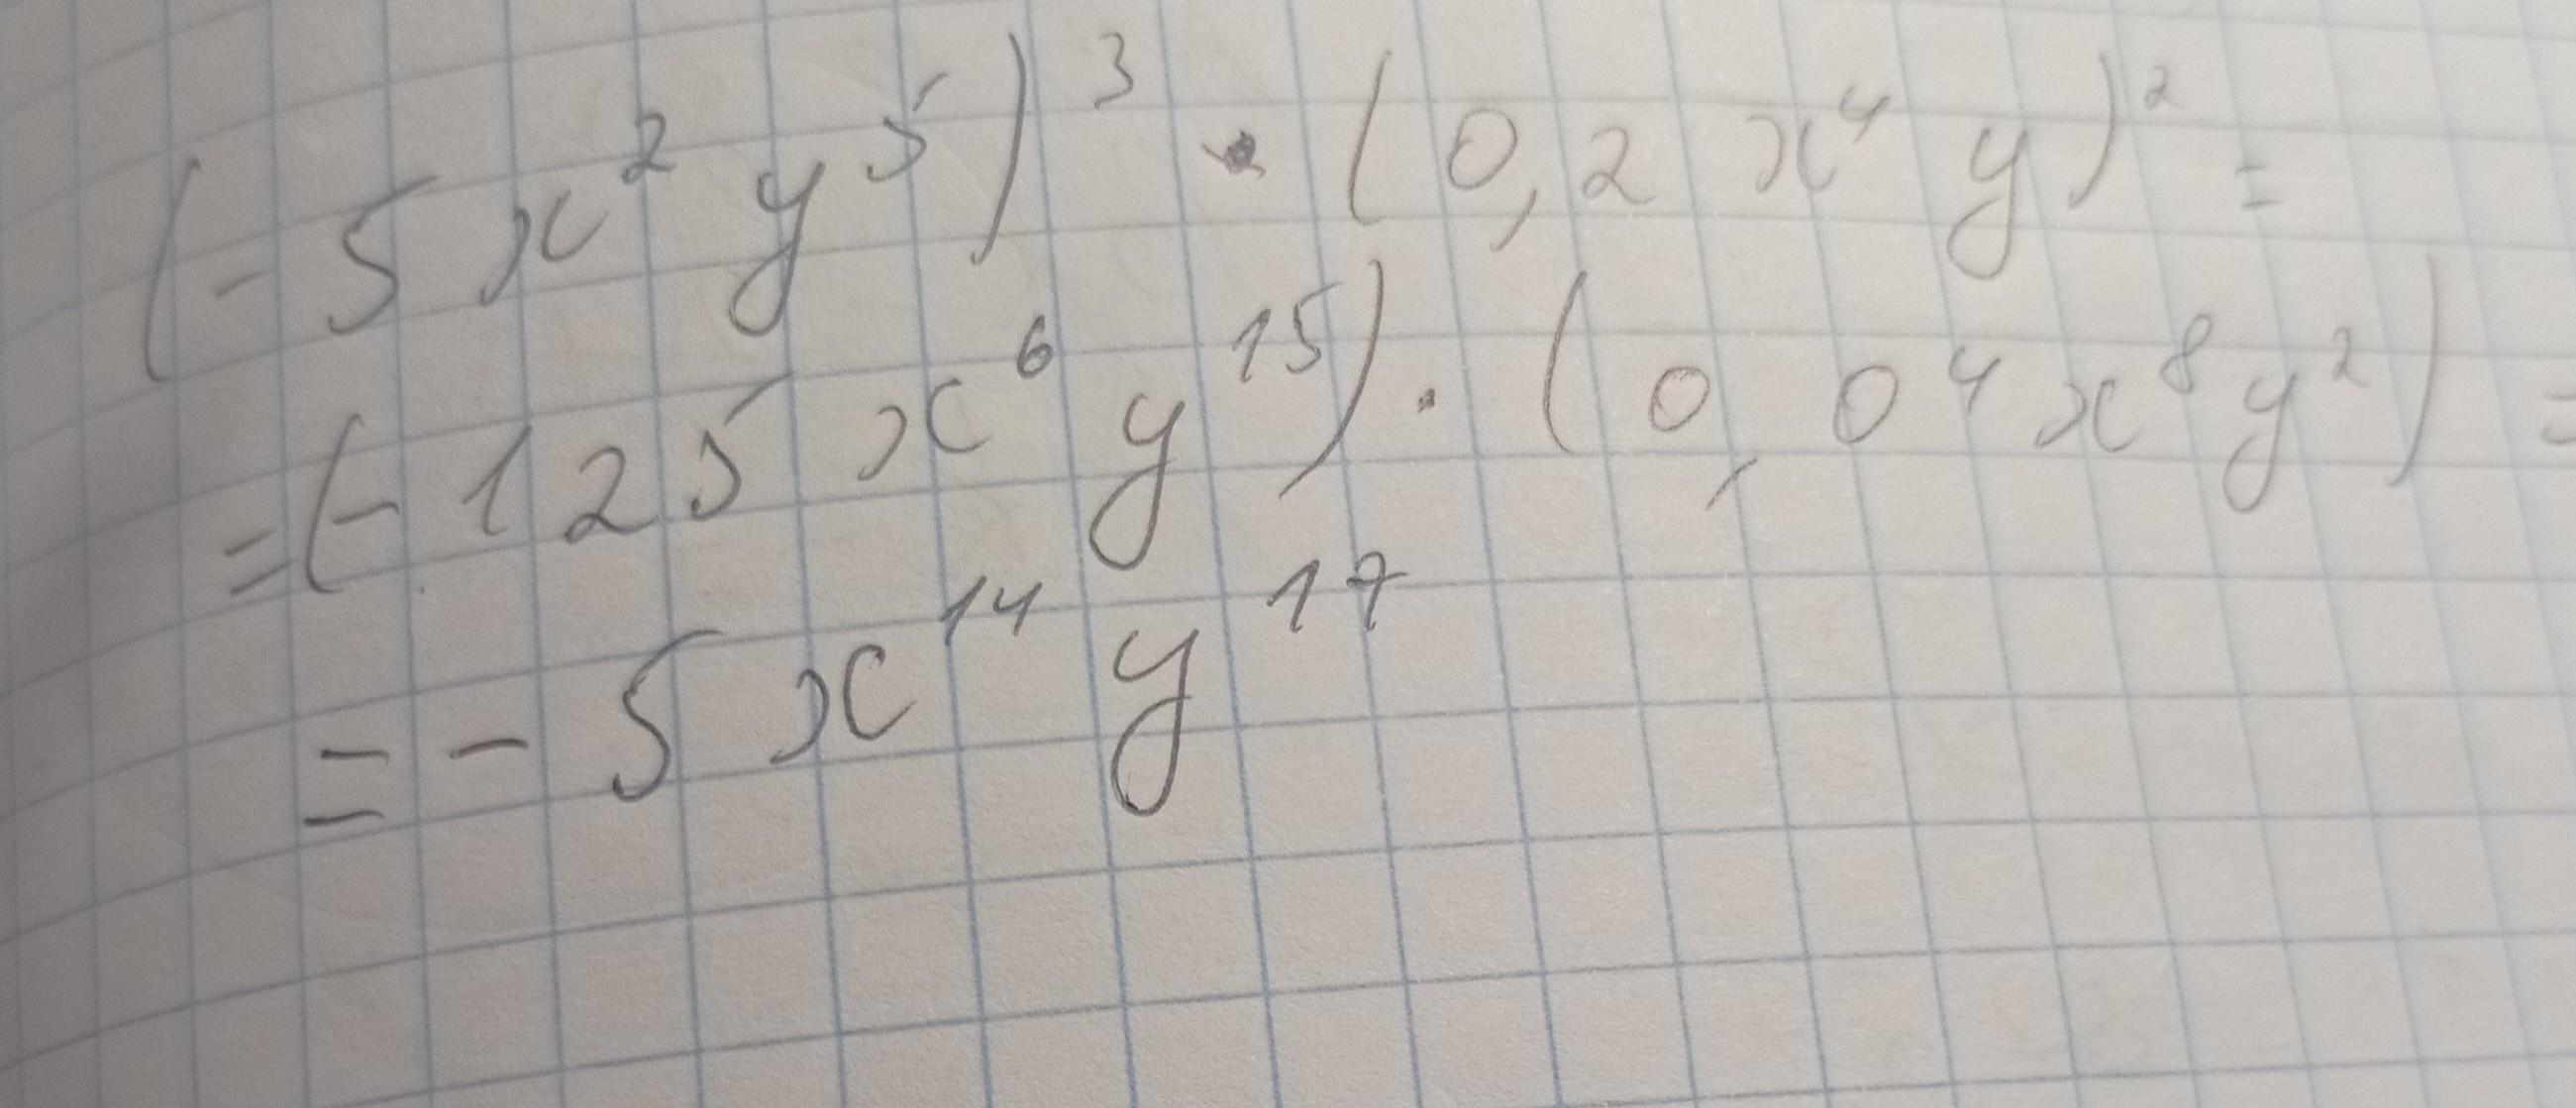 (-5x²y⁵)³ · (0,2x⁴y)² =
=(-125x⁶y¹⁵) · (0,04x⁸y²) =
= -5x¹⁴y¹⁷